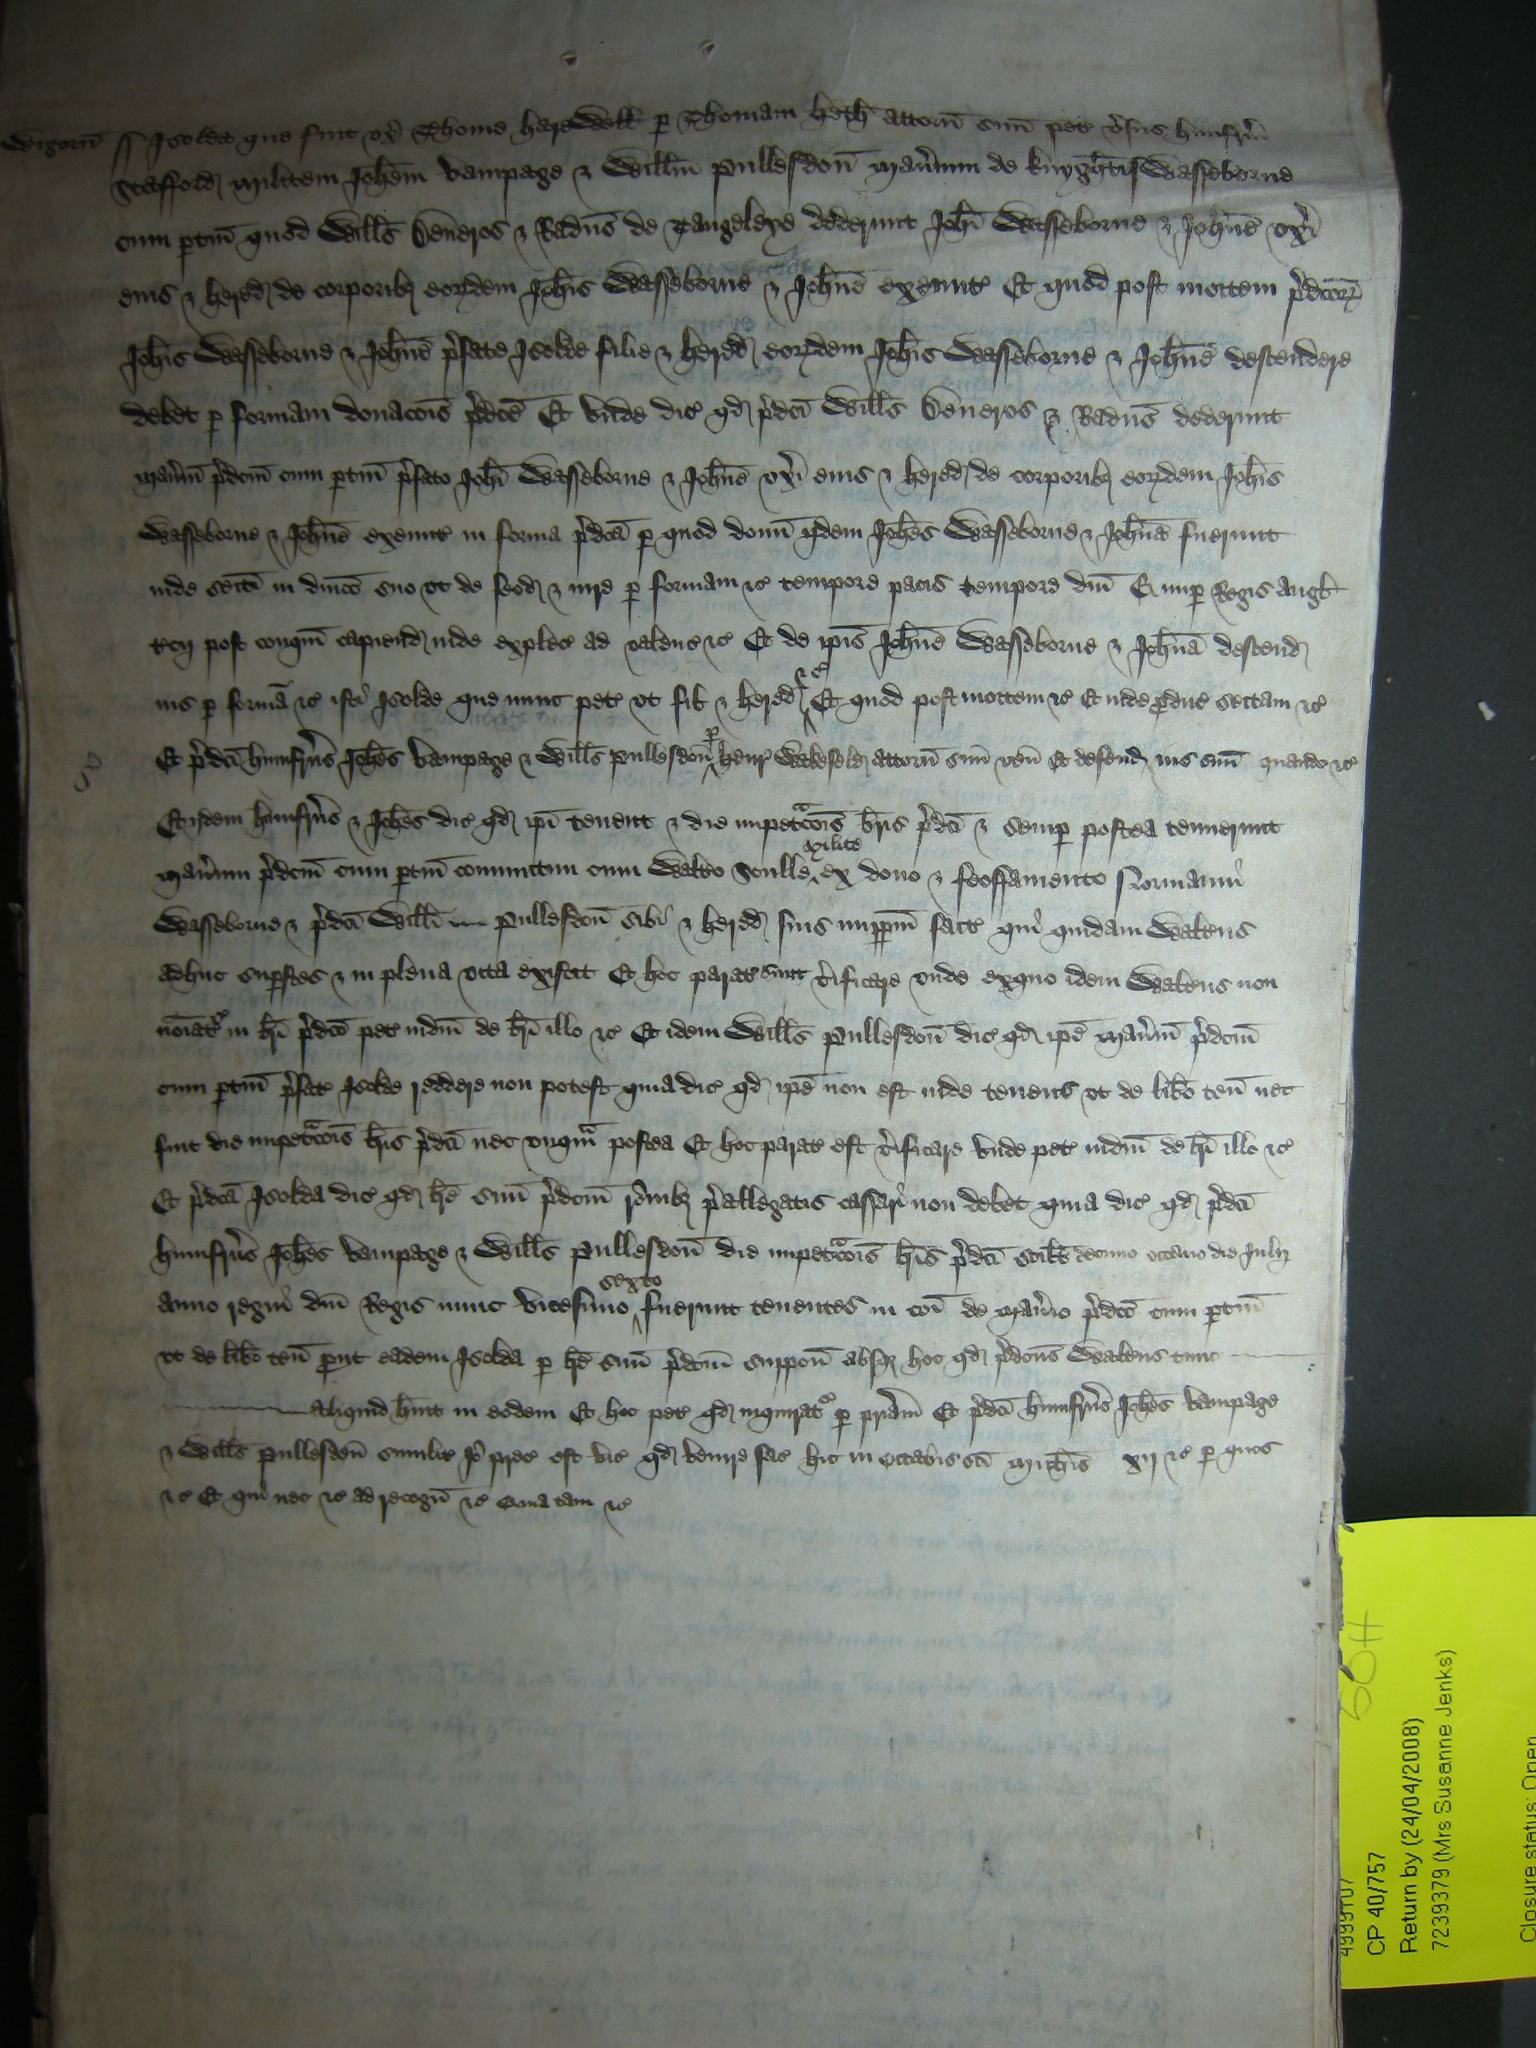 Wigorn̄ ſſ Isolda que fuit vx̄ Thome Harewell p̲ Thomam Heth attorn̄ suu̅ pet̕ v̕sus Humfr̅m
Stafford̛ militem Joh̅em Vampage ⁊ Will̅m Pullesdon̄ man̕ium de Knyghtis Wasseborne
cum p̲tin̄ quod Will̅s Deu̅eros ⁊ Rad̅us de Tangeleye dederunt Joh̅i Wasseborne ⁊ Joh̅ne vx̄i
eius ⁊ hered̛ de corporib₃ eor̛dem Joh̅is Wasseborne ⁊ Joh̅ne exeunt̕ Et quod post mortem p̕dc̅or̛
Joh̅is Wasseborne ⁊ Joh̅ne p̕fate Isolde filie ⁊ hered̛ eor̛dem Joh̅is Wasseborne ⁊ Joh̅ne descendere
debet p̲ formam donac̅ois p̕dc̅e Et vnde dic̕ qd̛ p̕dc̅i Will̅s Deu̅eros ⁊ Rad̅us dederunt
man̕iu̅ p̕dc̅m cum p̲tin̄ p̕fato Joh̅i Wasseborne ⁊ Joh̅ne vx̄i eius ⁊ hered̛ de corporib₃ eor̛dem Joh̅is
Wasseborne ⁊ Joh̅ne exeunt̕ in forma p̕dc̅a p̲ quod donu̅ ijdem Joh̅es Wasseborne ⁊ Joh̅na fuerunt
inde sei̅ti in dn̅ico suo vt de feod̛ ⁊ iure p̲ formam ⁊c̕ tempore pacis tempore dn̅i E nup̲ Regis Angl̕
t̕cij post conqm̅ capiend̛ inde explec̕ ad valenc̕ ⁊c̕ Et de ip̅is Joh̅ne Wasseborne ⁊ Joh̅na descend̛
ius p̲ forma̅ ⁊c̕ isti Isolde que nunc pet̕ vt fil̕ ⁊ hered̛ ⁊c̕ Et quod post mortem ⁊c̕ Et inde p̲duc̕ sectam ⁊c̕
Et p̕dc̅i Humfr̅us Joh̅es Vampage ⁊ Will̅s Pullesdon̄ p̲ Henr̕ Wakefeld̛ attorn̄ suu̅ ven̄ Et defend̛ ius suu̅ quando ⁊c̕
Et ijdem Humfr̅us ⁊ Joh̅es dic̕ qd̛ ip̅i tenent ⁊ die impetrac̅ois br̅is p̕dc̅i ⁊ semp̲ postea tenuerunt
man̕ium p̕dc̅m cum p̲tin̄ coniunctim cum Walt̕o Sculle milite ex dono ⁊ feoffamento Normanni
Wasseborne ⁊ p̕dc̅i Will̅i Pullesdon̄ sibi ⁊ hered̛ suis imp̲pm̅ fact̕ qui quidam Walt̕us
adhuc sup̲stes ⁊ in plena vita existit Et hoc parat̕ sunt v̕ificare vnde exquo idem Walt̕us non
no̅iat̕ in br̅i p̕dc̅o pet̕ iudm̅ de br̅i illo ⁊c̕ Et idem Will̅s Pullesdon̄ dic̕ qd̛ ip̅e man̕iu̅ p̕dc̅m
cum p̲tin̄ p̕fat̕ Isolde reddere non potest quia dic̕ qd̛ ip̅e non est inde tenens vt de lib̕o ten̄ nec
fuit die impetrac̅ois br̅is p̕dc̅i nec vnqm̅ postea Et hoc parat̕ est v̕ificare vnde pet̕ iudm̅ de br̅i illo ⁊c̕
Et p̕dc̅a Isolda dic̕ qd̛ br̅e suu̅ p̕dc̅m r̅onib₃ p̕allegatis cassari non debet quia dic̕ qd̛ p̕dc̅i
Humfr̅us Joh̅es Vampage ⁊ Will̅s Pullesdon̄ die impetrac̅ois br̅is p̕dc̅i scil̕t decimo octauo die Julij
anno regni dn̅i Regis nunc vicesimo sexto fuerunt tenentes in co̅i de man̕io p̕dc̅o cum p̲tin̄
vt de lib̕o ten̄ p̲ut eadem Isolda p̲ br̅e suu̅ p̕dc̅m suppon̄ absq̛ hoc qd̛ p̕dc̅us Walt̕us tunc
aliquid h̅uit in eodem Et hoc pet̕ qd̛ inquirat̕ p̲ pr̅iam Et p̕dc̅i Humfr̅us Joh̅es Vampage
⁊ Will̅s Pullesdon̄ similit̕ Jo̕ prec̕ est vic̕ qd̛ venire fac̕ hic in octabis sc̅i Mich̅is xij ⁊c̕ p̲ quos
⁊c̕ Et qui nec ⁊c̕ ad recogn̄ ⁊c̕ Quia tam ⁊c̕
CP 40/757
Return by (24/04/2008)
7239379 (Mrs Susanne Jenks)
Closure status: Open